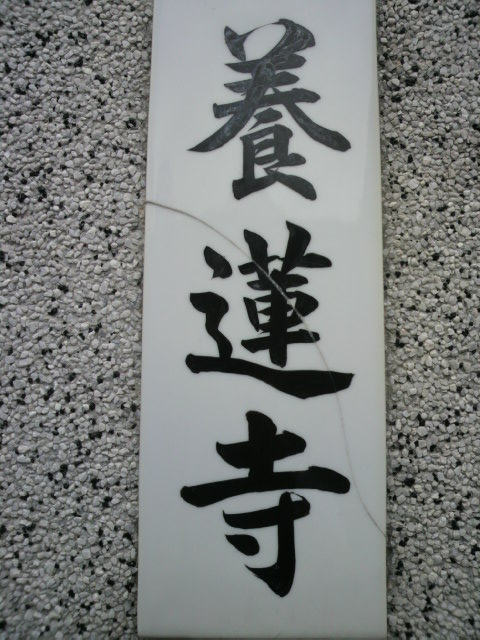 養蓮寺